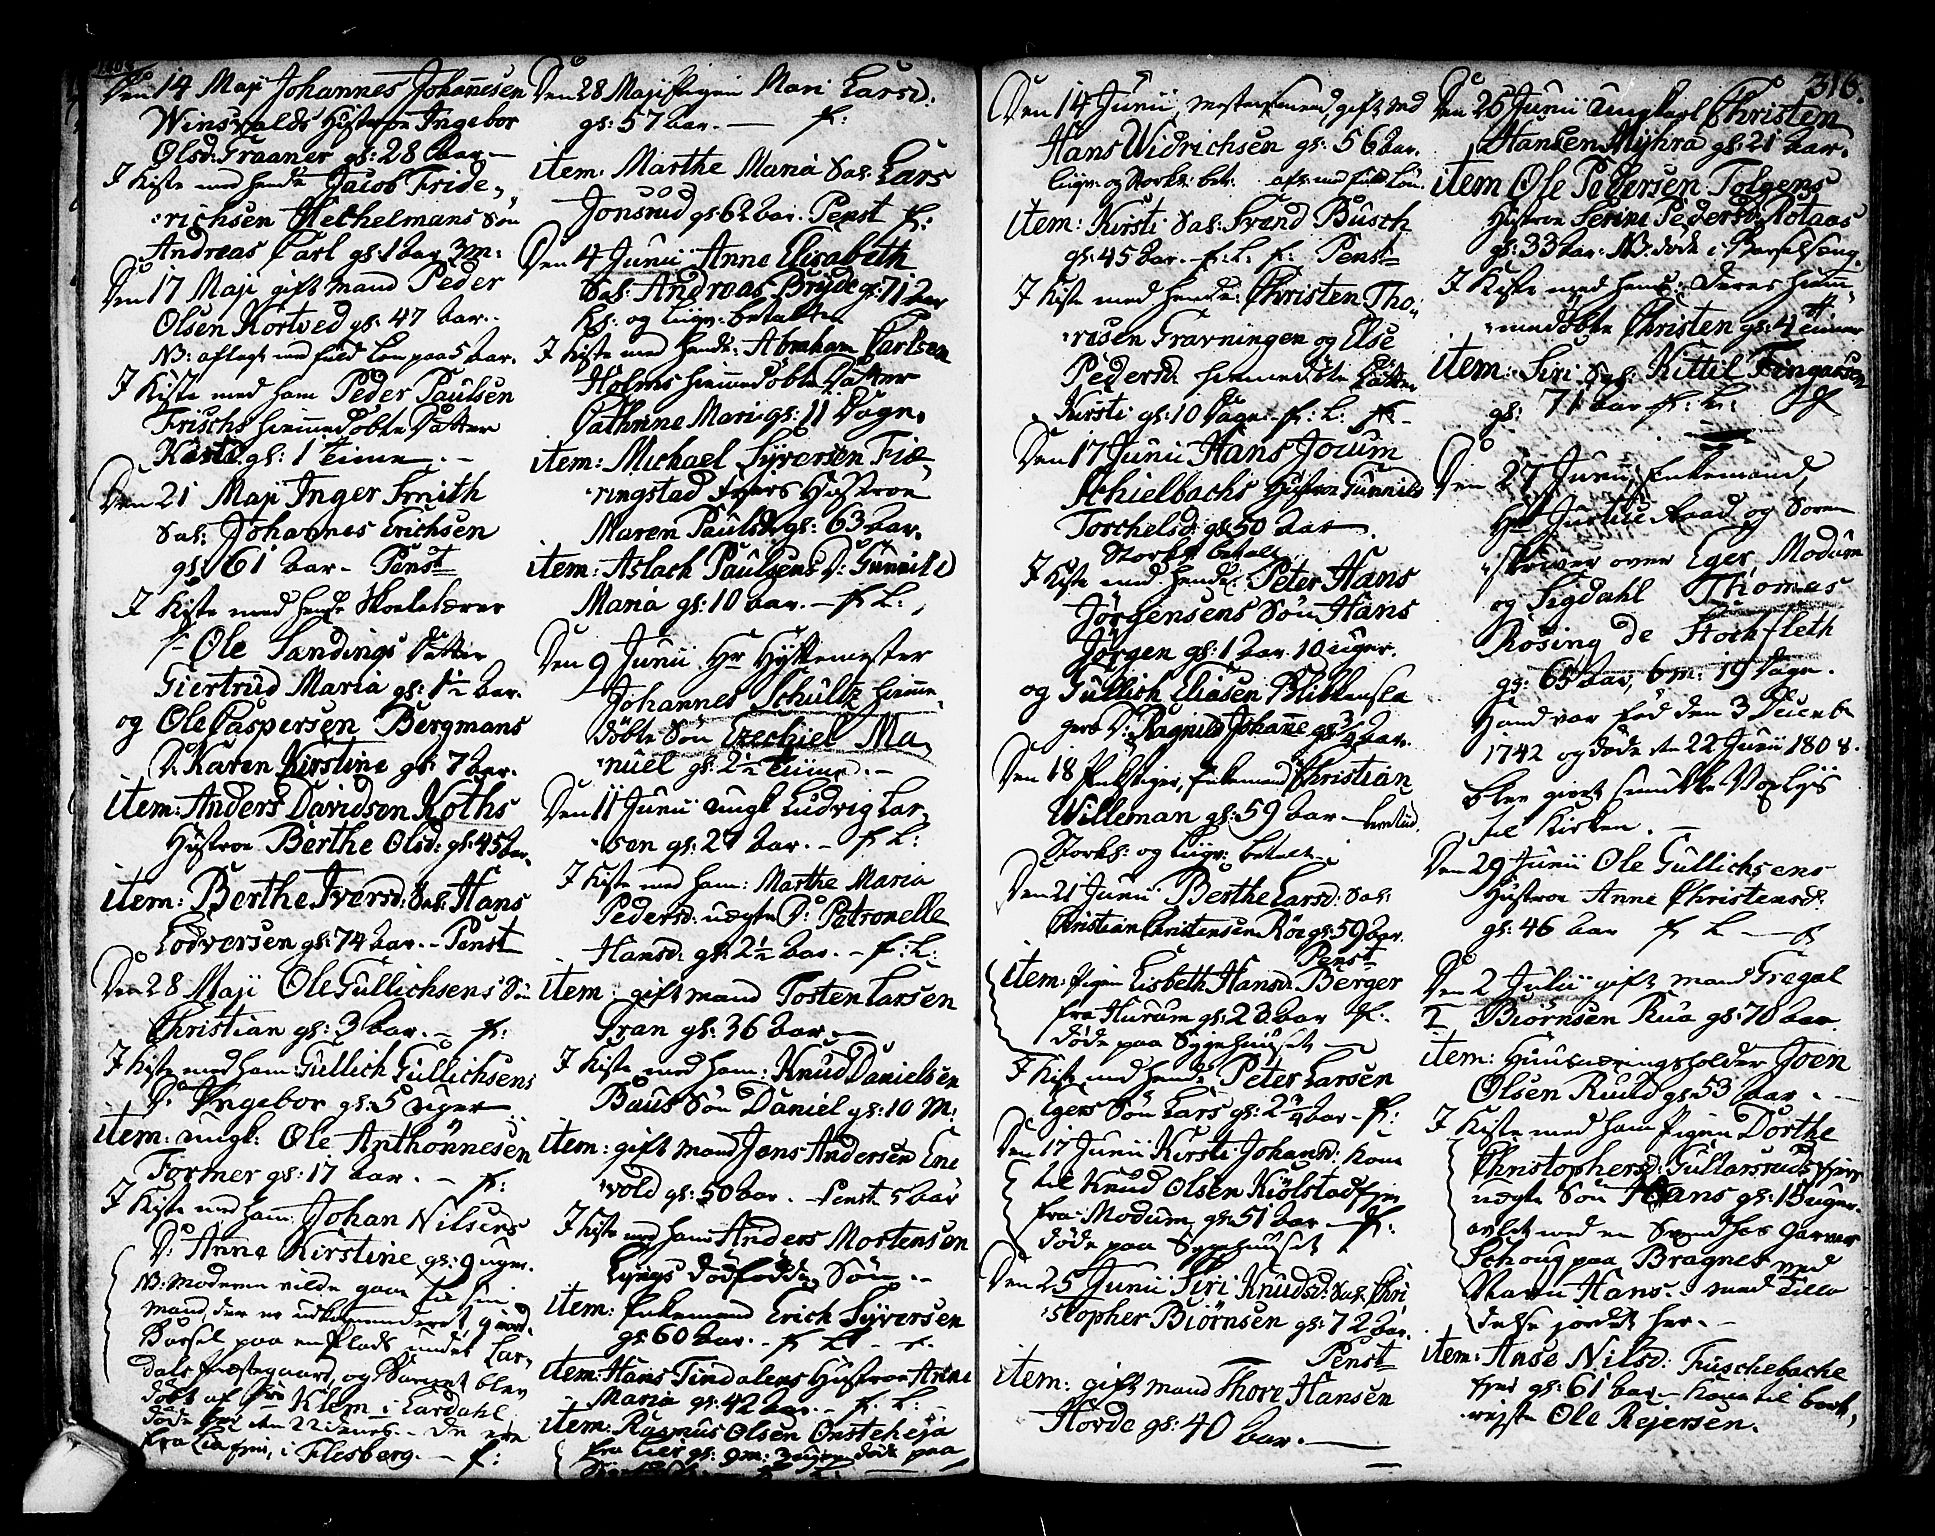 1808
Den 14 Maji Johannes Johannesen
Winsvalds Hustroe Ingebor
Olsd: Graaner gl: 28 Aar –
I Kiste med hende Jacob Fride-
richsen Hechelmans Søn
Andreas Carl gl: 1 Aar 3 M:
Den 17 Maji gift mand Peder
Olsen Kortved gl: 47 Aar.
NB: aflagt med fuld Løn paa 5 Aar.
I Kiste med ham Peder Paulsen
Frischs hiemmedøbte Datter
Karte gl: 1 Time. –
Den 21 Maji Inger Smith
Sal: Johannes Erichsen
gl: 61 Aar – Penst
I Kiste med hende Skoelelærer
Ole Sandings Datter
Giertrud Maria gl: 1½ Aar.
og Ole Caspersen Bergmans
D: Karen Kirstine gl: 7 Aar.
item: Anders Davidsen Koths
Hustroe Berthe Olsd: gl: 45 Aar.
item: Berthe Iversd: Sal: Hans
Lodversen gl: 74 Aar. – Penst
Den 28 Maji Ole Gullichsens Søn
Christian gl: 3 Aar. – f:
I Kiste med ham Gullich Gullichsens
D: Ingebor gl: 5 uger
item: ungk: Ole Anthonnesen
Former gl: 17 Aar. – f:
I Kiste med ham Johan Nilsens
D: Anne Kirstine gl: 9 uger.
NB: Moderen vilde gaae til sin
mand, der er udkommenderet, giorde
Barsel paa en Plads under Lar-
dals Præstegaard, og Barnet blev
døbt af Hr Klem i Lardahl,
døde her den 22 denes. – De ere
fra Lia fjer, i Flesberg. – f:
Den 28 Maji Pigen Mari Larsd:
gl: 57 Aar. – f:
item: Marthe Maria Sal: Lars
Jonsrud gl: 62 Aar. Penst f:
Den 4 Junii Anne Elisabeth
Sal: Andreas Bryde gl: 71 Aar
Ks: og Liigv: betalte
I Kiste med hende: Abraham Carlsen
Holms hiemmedøbte Datter
Cathrine Mari gl: 11 Dage.
item: Michael Syversen Fiæ-
ringstad fjers Hustroe
Maren Paulsd: gl: 63 Aar.
item: Aslach Paulsens D: Gunnild
Maria gl: 10 Aar. – f: L:
Den 9 Junii Hr Hyttemester
Johannes Schultz hiemme
døbte Søn Ezechiel Ma-
nuel gl: 2½ Time. –
Den 11 Junii ungk Ludvig Lar-
sen gl: 27 Aar. – f: L:
I Kiste med ham: Marthe Maria
Pedersd: uægte D: Petronelle
Hansd: gl: 2½ Aar. – f: L:
item: gift mand Tosten Larsen
Gran gl: 36 Aar. –
I Kiste med ham: Knud Danielsen
Baus Søn Daniel gl: 10 M:
item: gift mand Jens Andersen Ene
vold gl: 50 Aar. – Penst 5 Aar
I Kiste med ham Anders Mortensen
Lyngs dødfødde Søn. –
item: Enkemand Erich Syversen
gl: 60 Aar. – f L: –
item: Hans Tindalens Hustroe Anne
Maria gl: 42 Aar. – f: L: –
item: Rasmus Olsen Onsteheja
fra Lier gl: 9 M: 3 uger døde paa
316.
Den 14 Junii, gift med
Hans Widrichsen gl: 56 Aar.
Liigv: og Storkl: bet: afl: med fuld Løn.
item: Kirsti Sal: Svend Busch
gl: 45 Aar. – f: L: f: Penst
I Kiste med hende: Christen Tho-
resen Gravningen og Else
Pedersd: hiemmedøbte Datter
Kirsti gl: 10 Dage f: L: f: –
Den 17 Junii Hans Jocum
Schielbachs Hustroe Gunnild
Torchelsd: gl: 50 Aar.
Storkl: betalt.
I Kiste med hende: Peter Hans
Jørgensens Søn Hans
Jørgen gl: 1 Aar 10 uger.
og Gullich Eliasen Blikkensla
gers D: Ragnild Johanne gl: ¾ Aar.
Den 18 Enkemand Christian
Willeman gl: 59 Aar –
Storkl: og Liigv: betalt
Den 21 Junii Berthe Larsd: Sal:
Christian Christensen Røe gl: 59 Aar.
Penst
item: Pigen Lisbeth Hansd: Berger
fra Hurum gl: 23 Aar f:
døde paa Sygehuuset –
I Kiste med hende Peter Larsen
Igers Søn Lars gl: 2¾ Aar – f:
Den 17 Junii Kirsti Johansd: Kone
til Knud Olsen Kiølstad fjer
fra Modum, gl: 51 Aar – f:
døde paa Sygehuuset
Den 25 Junii Siri Knudsd: Sal: Chri
stopher Biørnsen gl: 72 Aar.
Penst
item: gift mand Thore Hansen
Hørde gl: 40 Aar. –
Den 25 Junii Ungkarl Christen
Hansen Myhra gl: 21 Aar.
item Ole Pedersen Tolgens
Hustroe Serine Pedersd: Rotaas
gl: 33 Aar. NB. døde i Barselseng.
I Kiste med hende: Deres hiem-
medøbte Christen gl: 4 timer
item: Siri Sal: Kittil Fingarsen
gl: 71 Aar f: L:
Den 27 Junii, Enkemand,
Hr Justice Raad og Soren
skriver over Eger, Modum
og Sigdahl Thomes
Rosing de Stochfleth
gl: 65 Aar, 6 m: 19 Dage.
Hand var fød den 3 Decembr
1742 og døde den 22 Junii 1808.
blev giort smukke Voxlys
til Kirken. –
Den 29 Junii Ole Gullichsens
Hustroe Anne Christensd:
gl: 46 Aar f L –
Den 2 Julii gift mand Gregal
Biørnsen Rua gl: 70 Aar
item: Huusnæringsholder Joen
Olsen Ruud gl: 53 Aar. –
I Kiste med ham Pigen Dorthe
Christophersd: Gullarsruds fjer
uægte Søn Hans gl: 13 uger.
avlet med en Svend hos Garver
Schoug paa Bragnes ved
Navn Hans. – med Tilla
delse jordet her. –
item: Anse Nilsd: Fuschebache
fjer gl: 61 Aar – Kone til bort-
rejste Ole Rejersen.